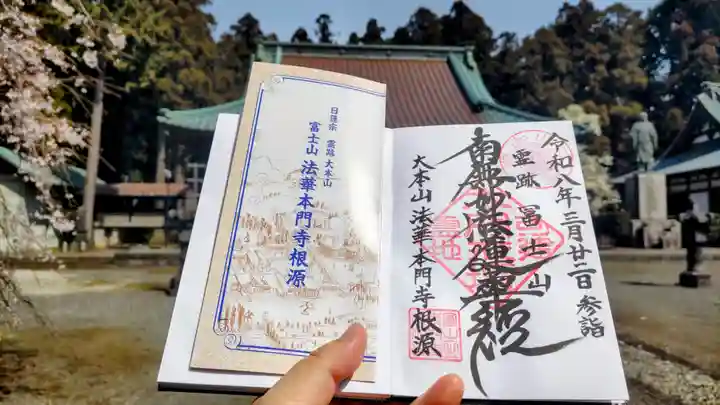 日蓮宗 霊跡 大本山
富士山 法華本門寺根源
令和八年三月廿二日 参詣
霊跡 冨士山
南無妙法蓮華経
大本山 法華本門寺根源